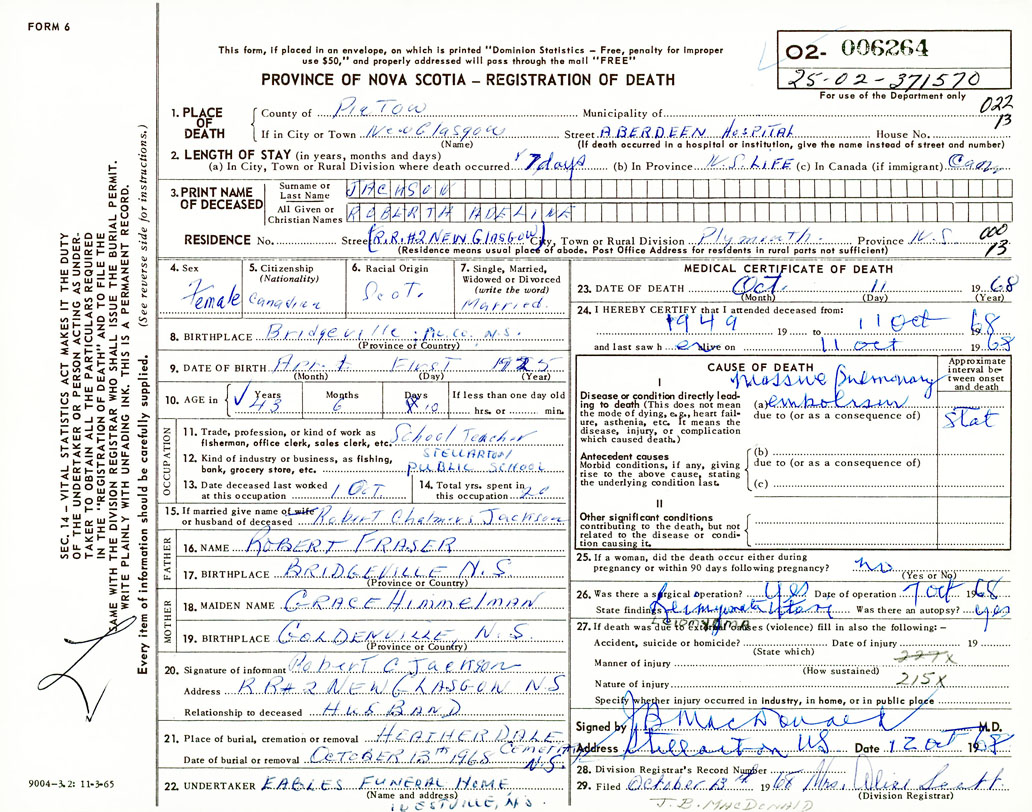 FORM 6
This form, if placed in an envelope, on which is printed "Dominion Statistics – Free, penalty for improper
use $50," and properly addressed will pass through the mail "FREE"
PROVINCE OF NOVA SCOTIA – REGISTRATION OF DEATH
02- 006264
25-02-371570
For use of the Department only
022
13
1. PLACE OF DEATH
County of Pictow Municipality of
If in City or Town New Glasgow Street ABERDEEN HOSPITAL House No.
(Name) (If death occurred in a hospital or institution, give the name instead of street and number)
2. LENGTH OF STAY (in years, months and days)
(a) In City, Town or Rural Division where death occurred 7 days (b) In Province N.S. LIFE (c) In Canada (if immigrant)
3. PRINT NAME OF DECEASED
Surname or Last Name JACKSON
All Given or Christian Names ROBERTH ADELINE
RESIDENCE No. Street (R.R.#2 NEW GLASGOW) City, Town or Rural Division Plymouth. Province N.S.
000
13
(Residence means usual place of abode. Post Office Address for residents in rural parts not sufficient)
4. Sex Female
5. Citizenship (Nationality) Canadian
6. Racial Origin Scot.
7. Single, Married, Widowed or Divorced (write the word) Married.
8. BIRTHPLACE Bridgeville, Pic. Co. N.S.
(Province of Country)
9. DATE OF BIRTH First 1925
(Month) (Day) (Year)
10. AGE in Years 43 Months 6 Days 10 If less than one day old hrs. or min.
OCCUPATION
11. Trade, profession, or kind of work as fisherman, office clerk, sales clerk, etc. School Teacher
12. Kind of industry or business, as fishing, bank, grocery store, etc. STELLARTON PUBLIC SCHOOL
13. Date deceased last worked at this occupation 1 OCT.
14. Total yrs. spent in this occupation 20
15. If married give name of wife or husband of deceased Robert Chalmers Jackson
FATHER
16. NAME ROBERT FRASER
17. BIRTHPLACE BRIDGEVILLE N.S
(Province or Country)
MOTHER
18. MAIDEN NAME GRACE HIMMELMAN
19. BIRTHPLACE GOLDENVILLE N.S
(Province or Country)
20. Signature of informant Robert C Jackson
Address R R # 2 NEW GLASGOW N S
Relationship to deceased HUSBAND
21. Place of burial, cremation or removal HEATHERDALE Cemetery N.S.
Date of burial or removal OCTOBER 13th 1968
22. UNDERTAKER EAGLES FUNERAL HOME
(Name and address)
WESTVILLE, N.S.
MEDICAL CERTIFICATE OF DEATH
23. DATE OF DEATH Oct. 11 1968
(Month) (Day) (Year)
24. I HEREBY CERTIFY that I attended deceased from:
1949 19 to 11 Oct 1968
and last saw her alive on 11 oct 1968
CAUSE OF DEATH
Approximate interval between onset and death
I
Disease or condition directly leading to death (This does not mean the mode of dying, e.g., heart failure, asthenia, etc. It means the disease, injury, or complication which caused death.)
Massive Pulmonary
(a) embolism Stat
due to (or as a consequence of)
Antecedent causes
Morbid conditions, if any, giving rise to the above cause, stating the underlying condition last.
(b)
due to (or as a consequence of)
(c)
II
Other significant conditions
contributing to the death, but not related to the disease or condition causing it.
25. If a woman, did the death occur either during
pregnancy or within 90 days following pregnancy? no
(Yes or No)
26. Was there a surgical operation? Yes Date of operation 7 Oct 1968
State findings Was there an autopsy? yes
27. If death was due to external causes (violence) fill in also the following:–
Accident, suicide or homicide? Date of injury 19
(State which)
Manner of injury
(How sustained)
Nature of injury 215X
Specify whether injury occurred in Industry, in home, or in public place
Signed by J B MacDonald M.D.
Address Stellarton NS Date 12 Oct 1968
28. Division Registrar's Record Number
29. Filed October 13th 1968 Mrs. Scott.
(Division Registrar)
J. B. MACDONALD
SEC. 14 – VITAL STATISTICS ACT MAKES IT THE DUTY
OF THE UNDERTAKER OR PERSON ACTING AS UNDER-
TAKER TO OBTAIN ALL THE PARTICULARS REQUIRED
IN THE "REGISTRATION OF DEATH" AND TO FILE THE
SAME WITH THE DIVISION REGISTRAR WHO SHALL ISSUE THE BURIAL PERMIT.
WRITE PLAINLY WITH UNFADING INK. THIS IS A PERMANENT RECORD.
Every item of information should be carefully supplied. (See reverse side for instructions.)
9004-3.2: 11-3-65